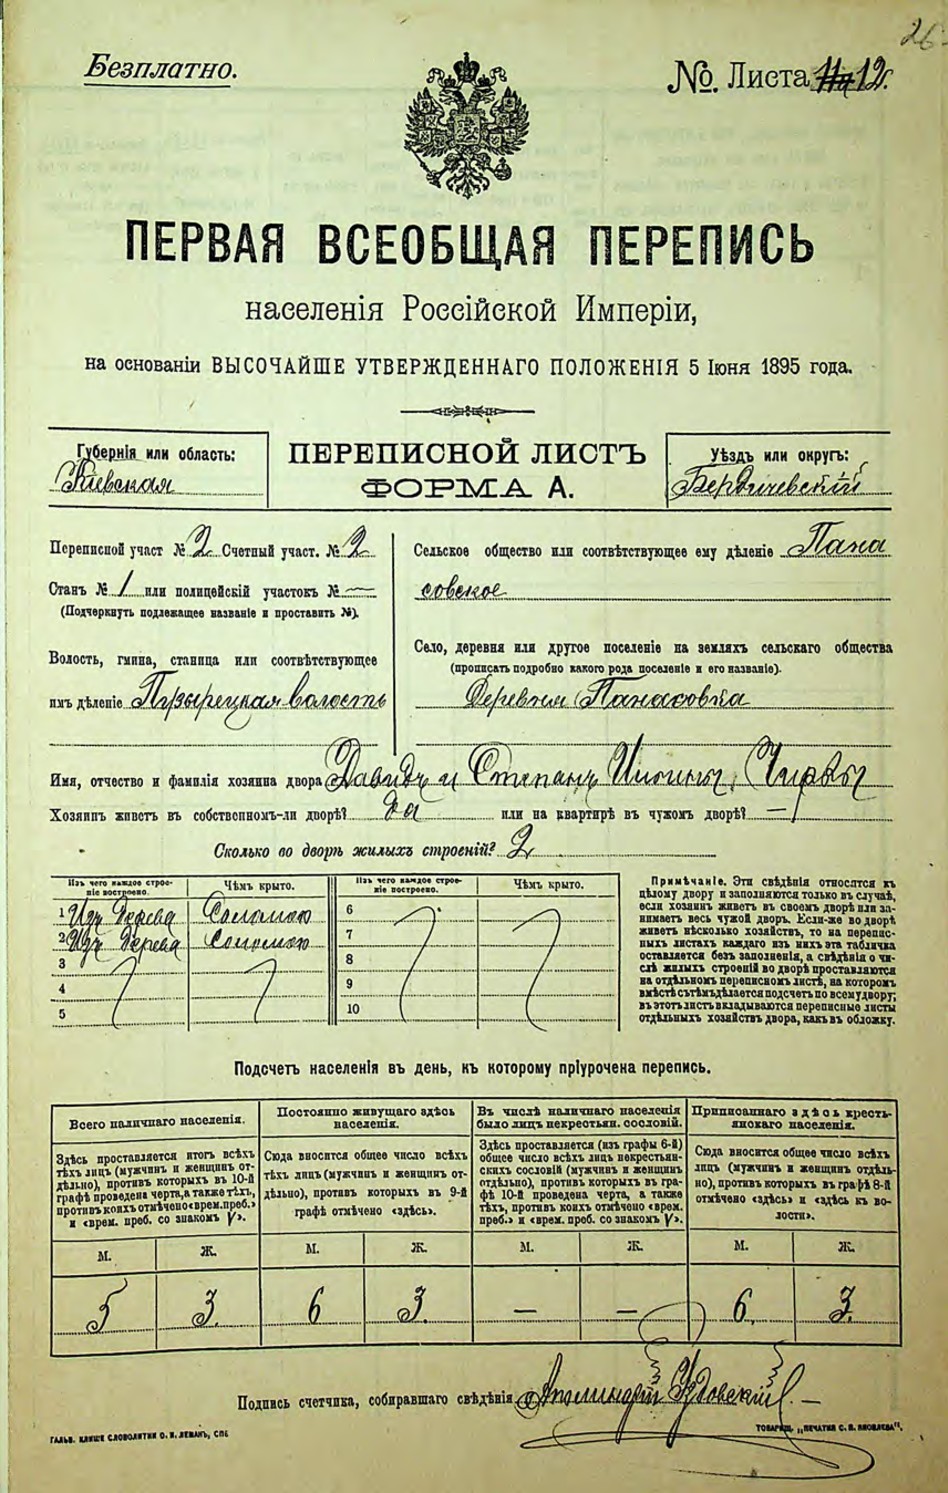 26.
Безплатно.
№. Листа 12.
ПЕРВАЯ ВСЕОБЩАЯ ПЕРЕПИСЬ
населенія Россійской Имперіи,
на основаніи ВЫСОЧАЙШЕ УТВЕРЖДЕННАГО ПОЛОЖЕНІЯ 5 Іюня 1895 года.
Губернія или область:
Кіевская
ПЕРЕПИСНОЙ ЛИСТЪ
ФОРМА А.
Уѣздъ или округъ:
Бердичевскій
Переписной участ № 2 Счетный участ. № 2
Станъ № 1 или полицейскій участокъ № —
(Подчеркнуть подлежащее названіе и проставить №).
Волость, гмина, станица или соотвѣтствующее
имъ дѣленіе волость
Сельское общество или соотвѣтствующее ему дѣленіе Пана
совское
Село, деревня или другое поселеніе на земляхъ сельскаго общества
(прописать подробно какого рода поселеніе и его названіе).
Деревня Панасовка
Имя, отчество и фамилія хозяина двора Давидъ и Степанъ
Хозяинъ живетъ въ собственномъ-ли дворѣ? да или на квартирѣ въ чужомъ дворѣ? —
Сколько во дворѣ жилыхъ строеній? 2
Изъ чего каждое строе-
ніе построено.
Чѣмъ крыто.
Изъ чего каждое строе-
ніе построено.
Чѣмъ крыто.
1 Изъ дерева Соломою
2 Изъ дерева Соломою
3
4
5
6
7
8
9
10
Примѣчаніе. Эти свѣдѣнія относятся къ
цѣлому двору и заполняются только въ случаѣ,
если хозяинъ живетъ въ своемъ дворѣ или за-
нимаетъ весь чужой дворъ. Если-же во дворѣ
живетъ нѣсколько хозяйствъ, то на перепис-
ныхъ листахъ каждаго изъ нихъ эта табличка
оставляется безъ заполненія, а свѣдѣнія о чи-
слѣ жилыхъ строеній во дворѣ проставляются
на отдѣльномъ переписномъ листѣ, на которомъ
вмѣстѣ съ тѣмъ дѣлается подсчетъ по всему двору;
въ этотъ листъ вкладываются переписные листы
отдѣльныхъ хозяйствъ двора, какъ въ обложку.
Подсчетъ населенія въ день, къ которому пріурочена перепись.
Всего наличнаго населенія.
Здѣсь проставляется итогъ всѣхъ
тѣхъ лицъ (мужчинъ и женщинъ от-
дѣльно), противъ которыхъ въ 10-й
графѣ проведена черта, а также тѣхъ,
противъ коихъ отмѣчено «врем. преб.»
и «врем. преб. со знакомъ V».
Постоянно живущаго здѣсь
населенія.
Сюда вносится общее число всѣхъ
тѣхъ лицъ (мужчинъ и женщинъ от-
дѣльно), противъ которыхъ въ 9-й
графѣ отмѣчено «здѣсь».
Въ числѣ наличнаго населенія
было лицъ некрестьян. сословій.
Здѣсь проставляется (изъ графы 6-й)
общее число всѣхъ лицъ некрестьян-
скихъ сословій (мужчинъ и женщинъ
отдѣльно), противъ которыхъ въ гра-
фѣ 10-й проведена черта, а также
тѣхъ, противъ коихъ отмѣчено «врем.
преб.» и «врем. преб. со знакомъ V».
Приписаннаго здѣсь кресть-
янскаго населенія.
Сюда вносится общее число всѣхъ
лицъ (мужчинъ и женщинъ отдѣль-
но), противъ которыхъ въ графѣ 8-й
отмѣчено «здѣсь» и «здѣсь къ во-
лости».
М. Ж. М. Ж. М. Ж. М. Ж.
5 3. 6 3. — — 6. 3.
Подпись счетчика, собиравшаго свѣдѣнія
ГАЛЬВ. КЛИШЕ СЛОВОЛИТНИ О. И. ЛЕМАНЪ, СПБ
ТОВАРИЩ. „ПЕЧАТНЯ С. П. ЯКОВЛЕВА“.